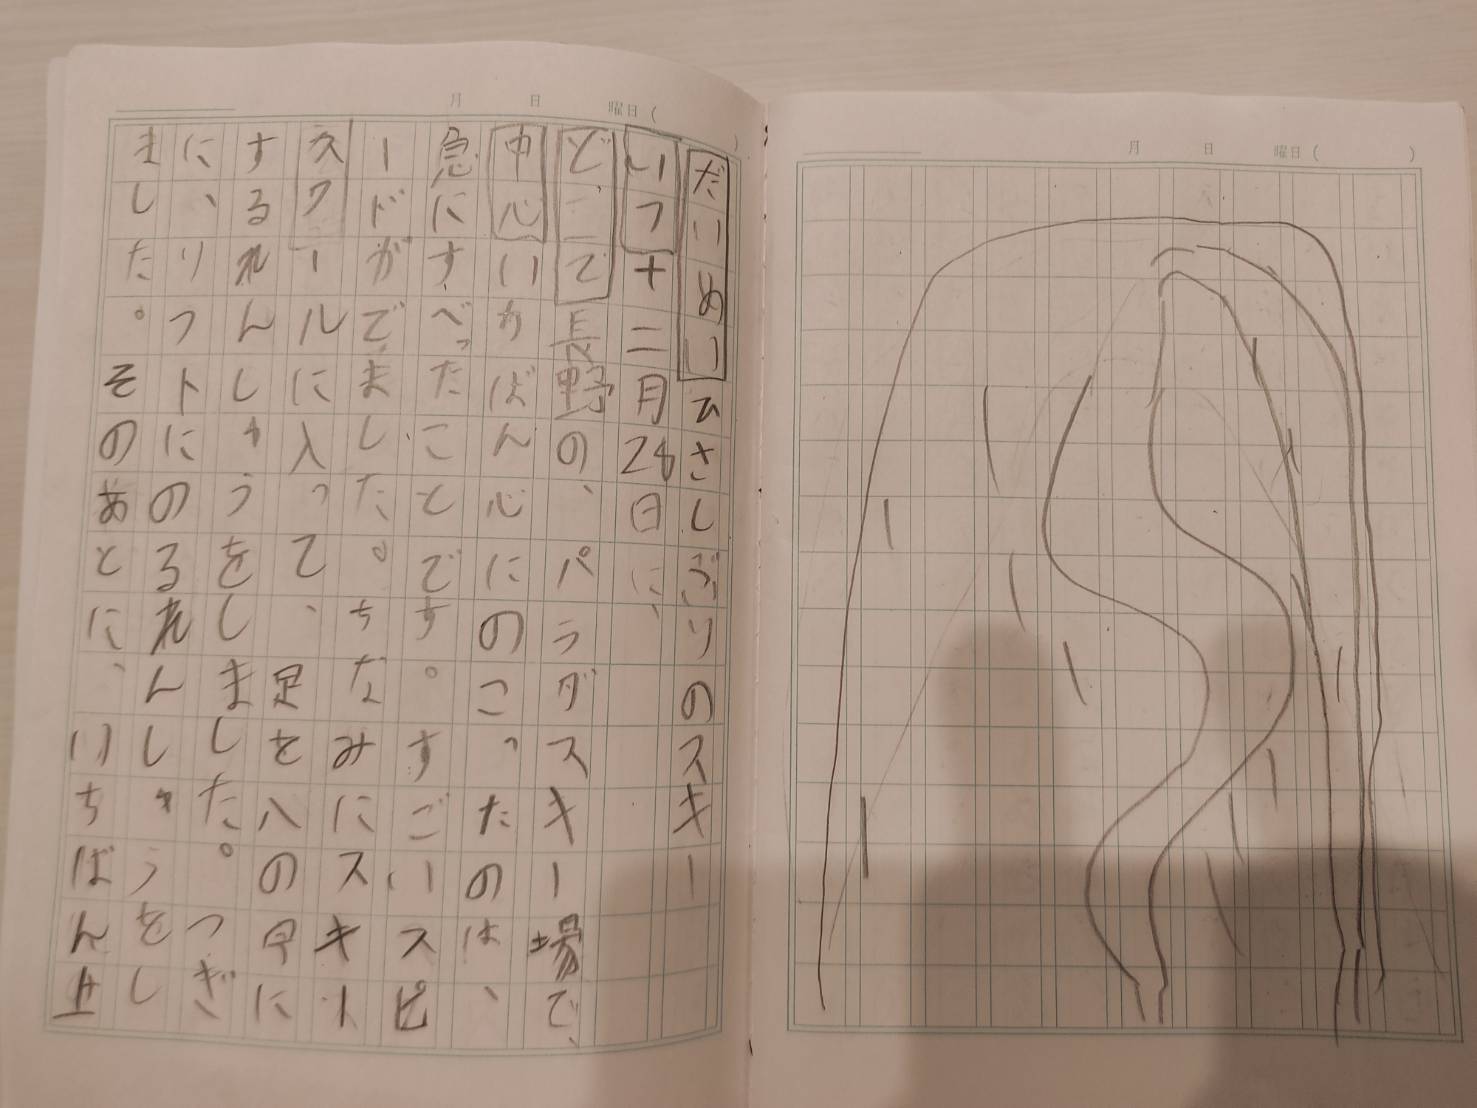 月 日 曜日 ( )
だいめいひさしぶりのスキー
いつ十二月28日に、
どこで長野の、パラダスキー場で、
中心いちばん心にのこったのは、
急にすべったことです。すごいスピ
ードがでました。ちなみにスキー
スクールに入って、足を八の字に
するれんしゅうをしました。つぎ
に、リフトにのるれんしゅうをし
ました。そのあとに、いちばん上
月 日 曜日 ( )